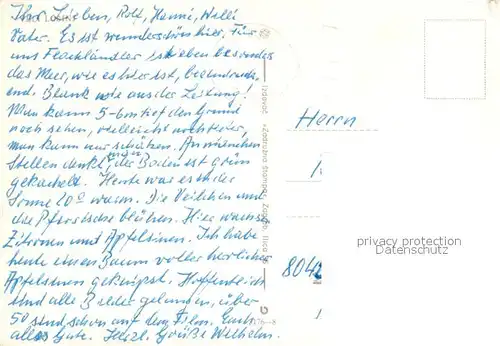 Ihr Lieben, Rolf, Hanni, Willi
Vater. Es ist wunderschön hier. Für
uns Flachländer ist eben besonders
das Meer, wie es hier ist, beeindruck-
end. Blank wie aus der Leitung!
Man kann 5-6m tief den Grund
noch sehen, vielleicht noch tiefer,
man kann nur schätzen. An manchen
Stellen denkt man, der Boden ist grün
gekachelt. Heute war es in der
Sonne 20° warm. Die Veilchen und
die Pfirsiche blühen. Hier wachsen
Zitronen und Apfelsinen. Ich habe
heute einen Baum voller herrlicher
Apfelsinen geknipst. Hoffentlich
sind alle Bilder gelungen, über
50 sind schon auf dem Film. Euch
alles Gute. Herzl. Grüße Wilhelm.
Herrn
8042
privacy protection
Datenschutz